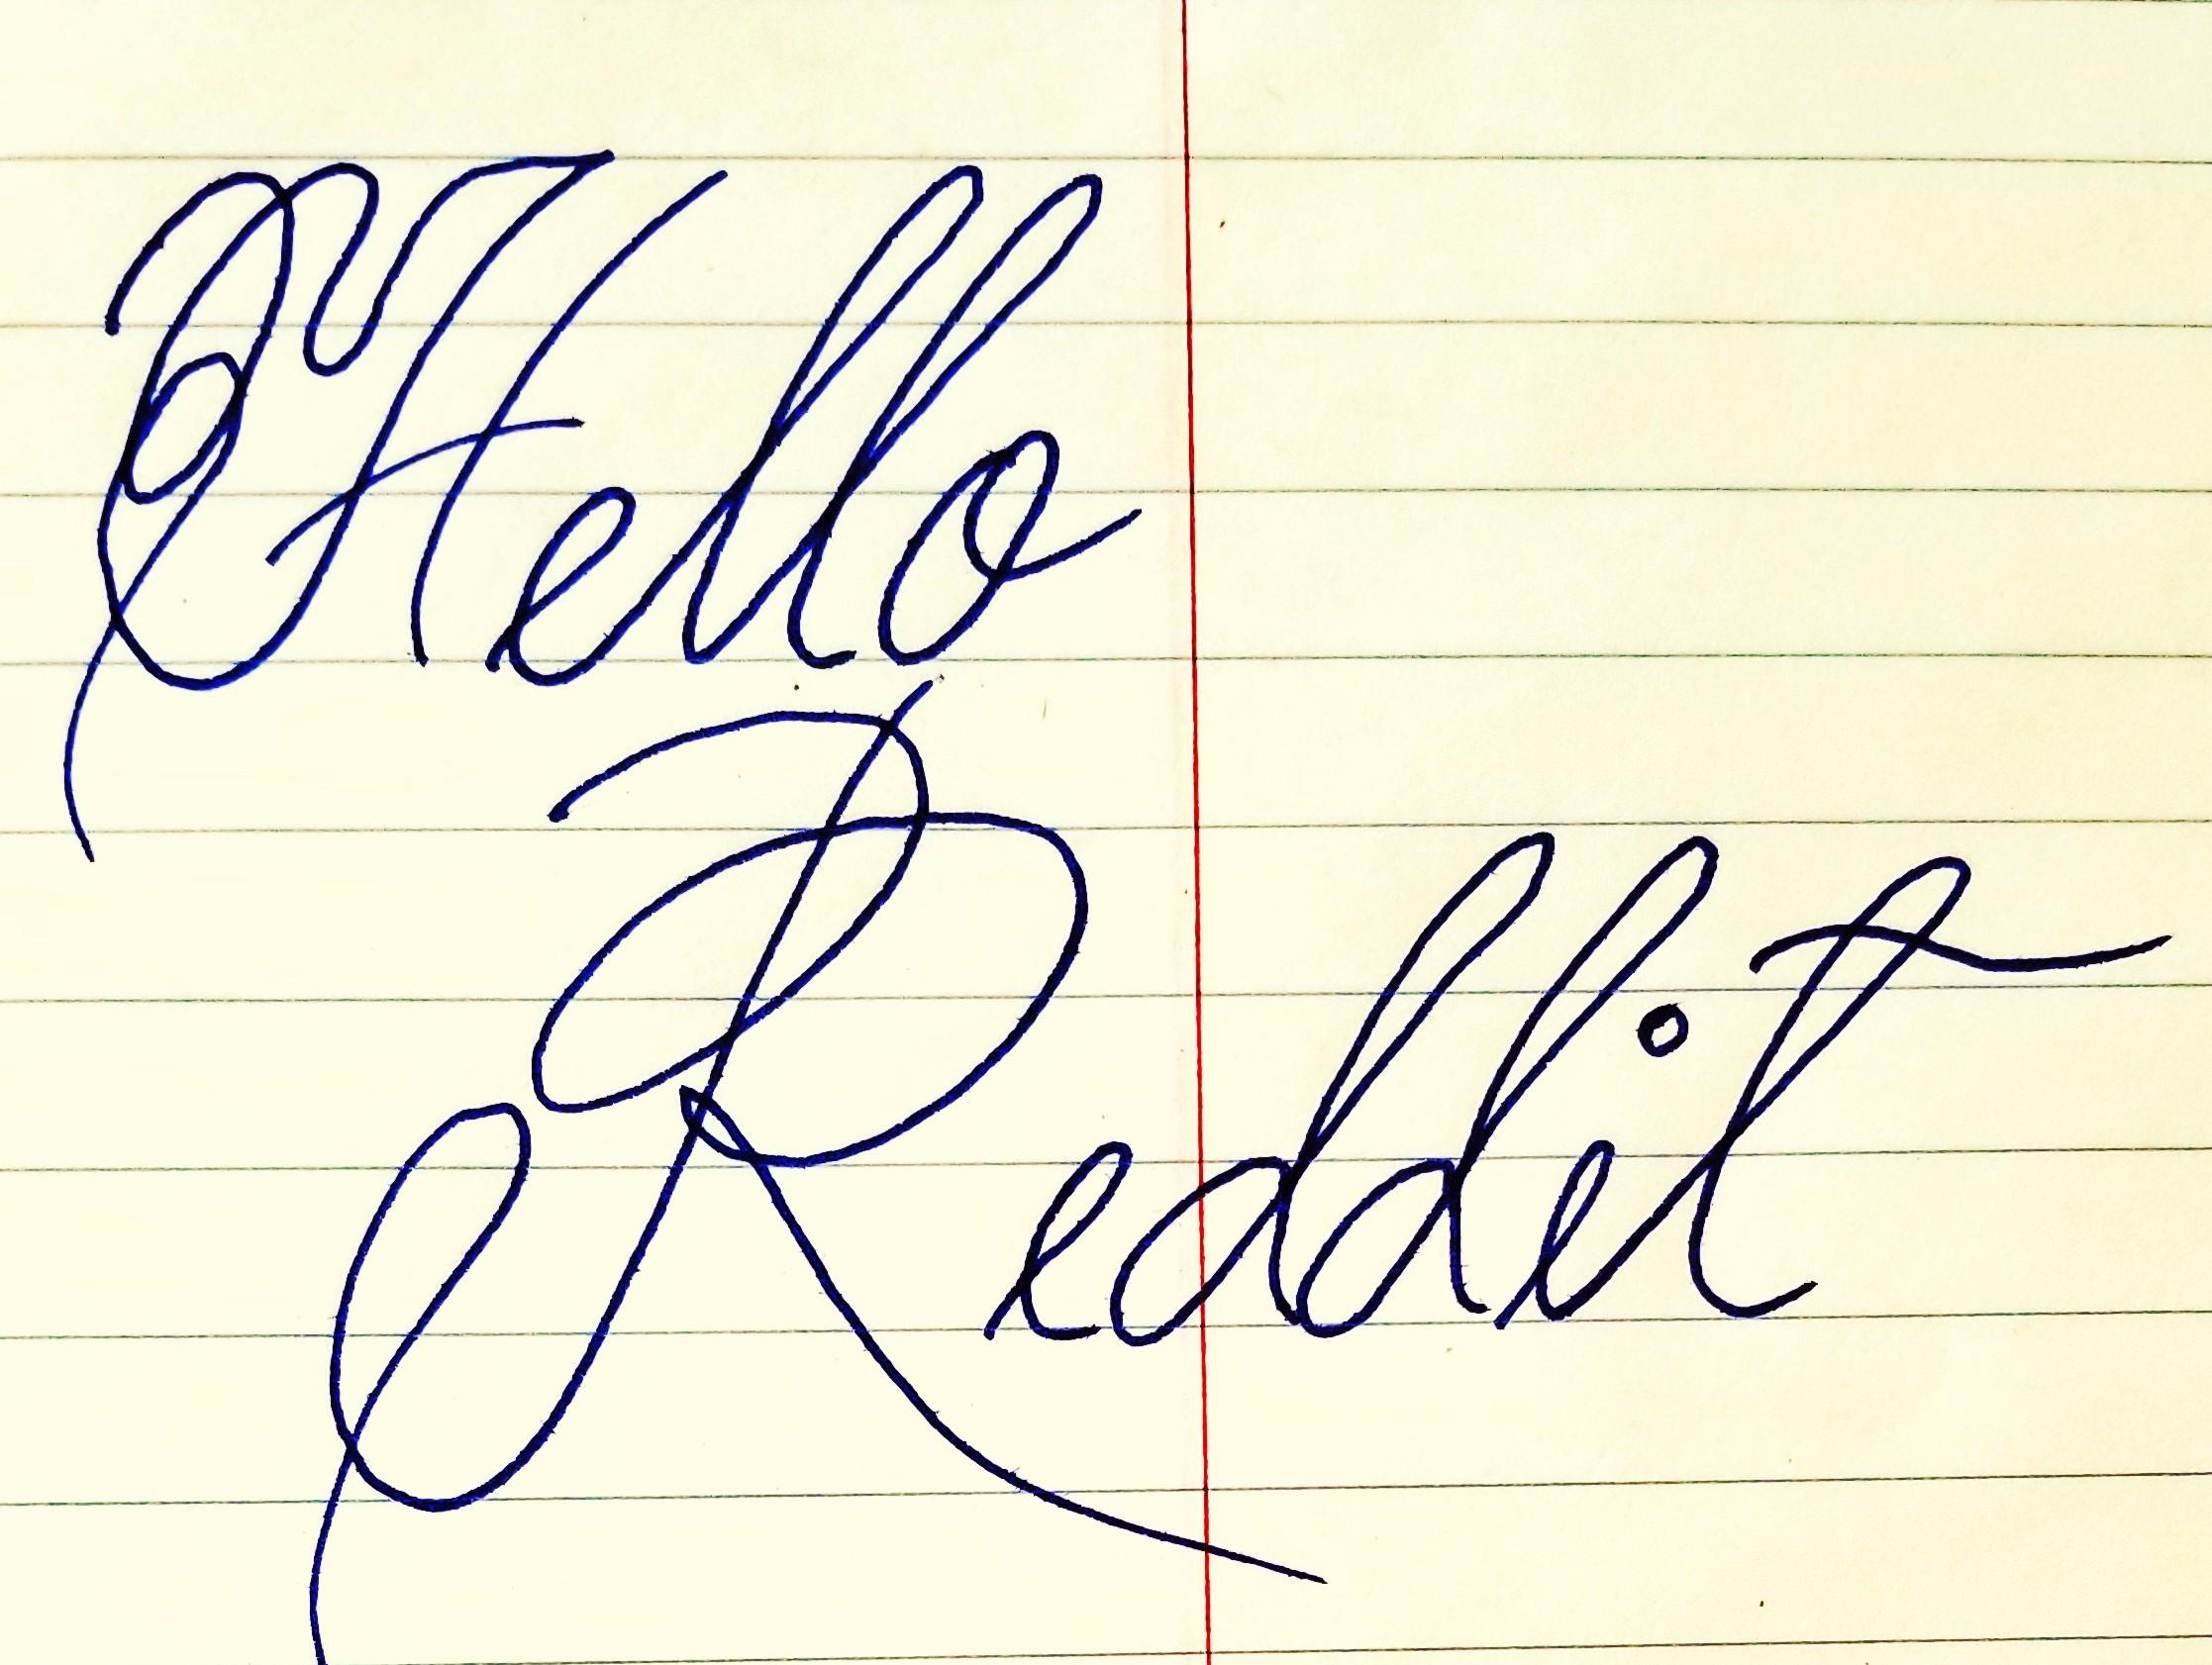 Hello
Reddit